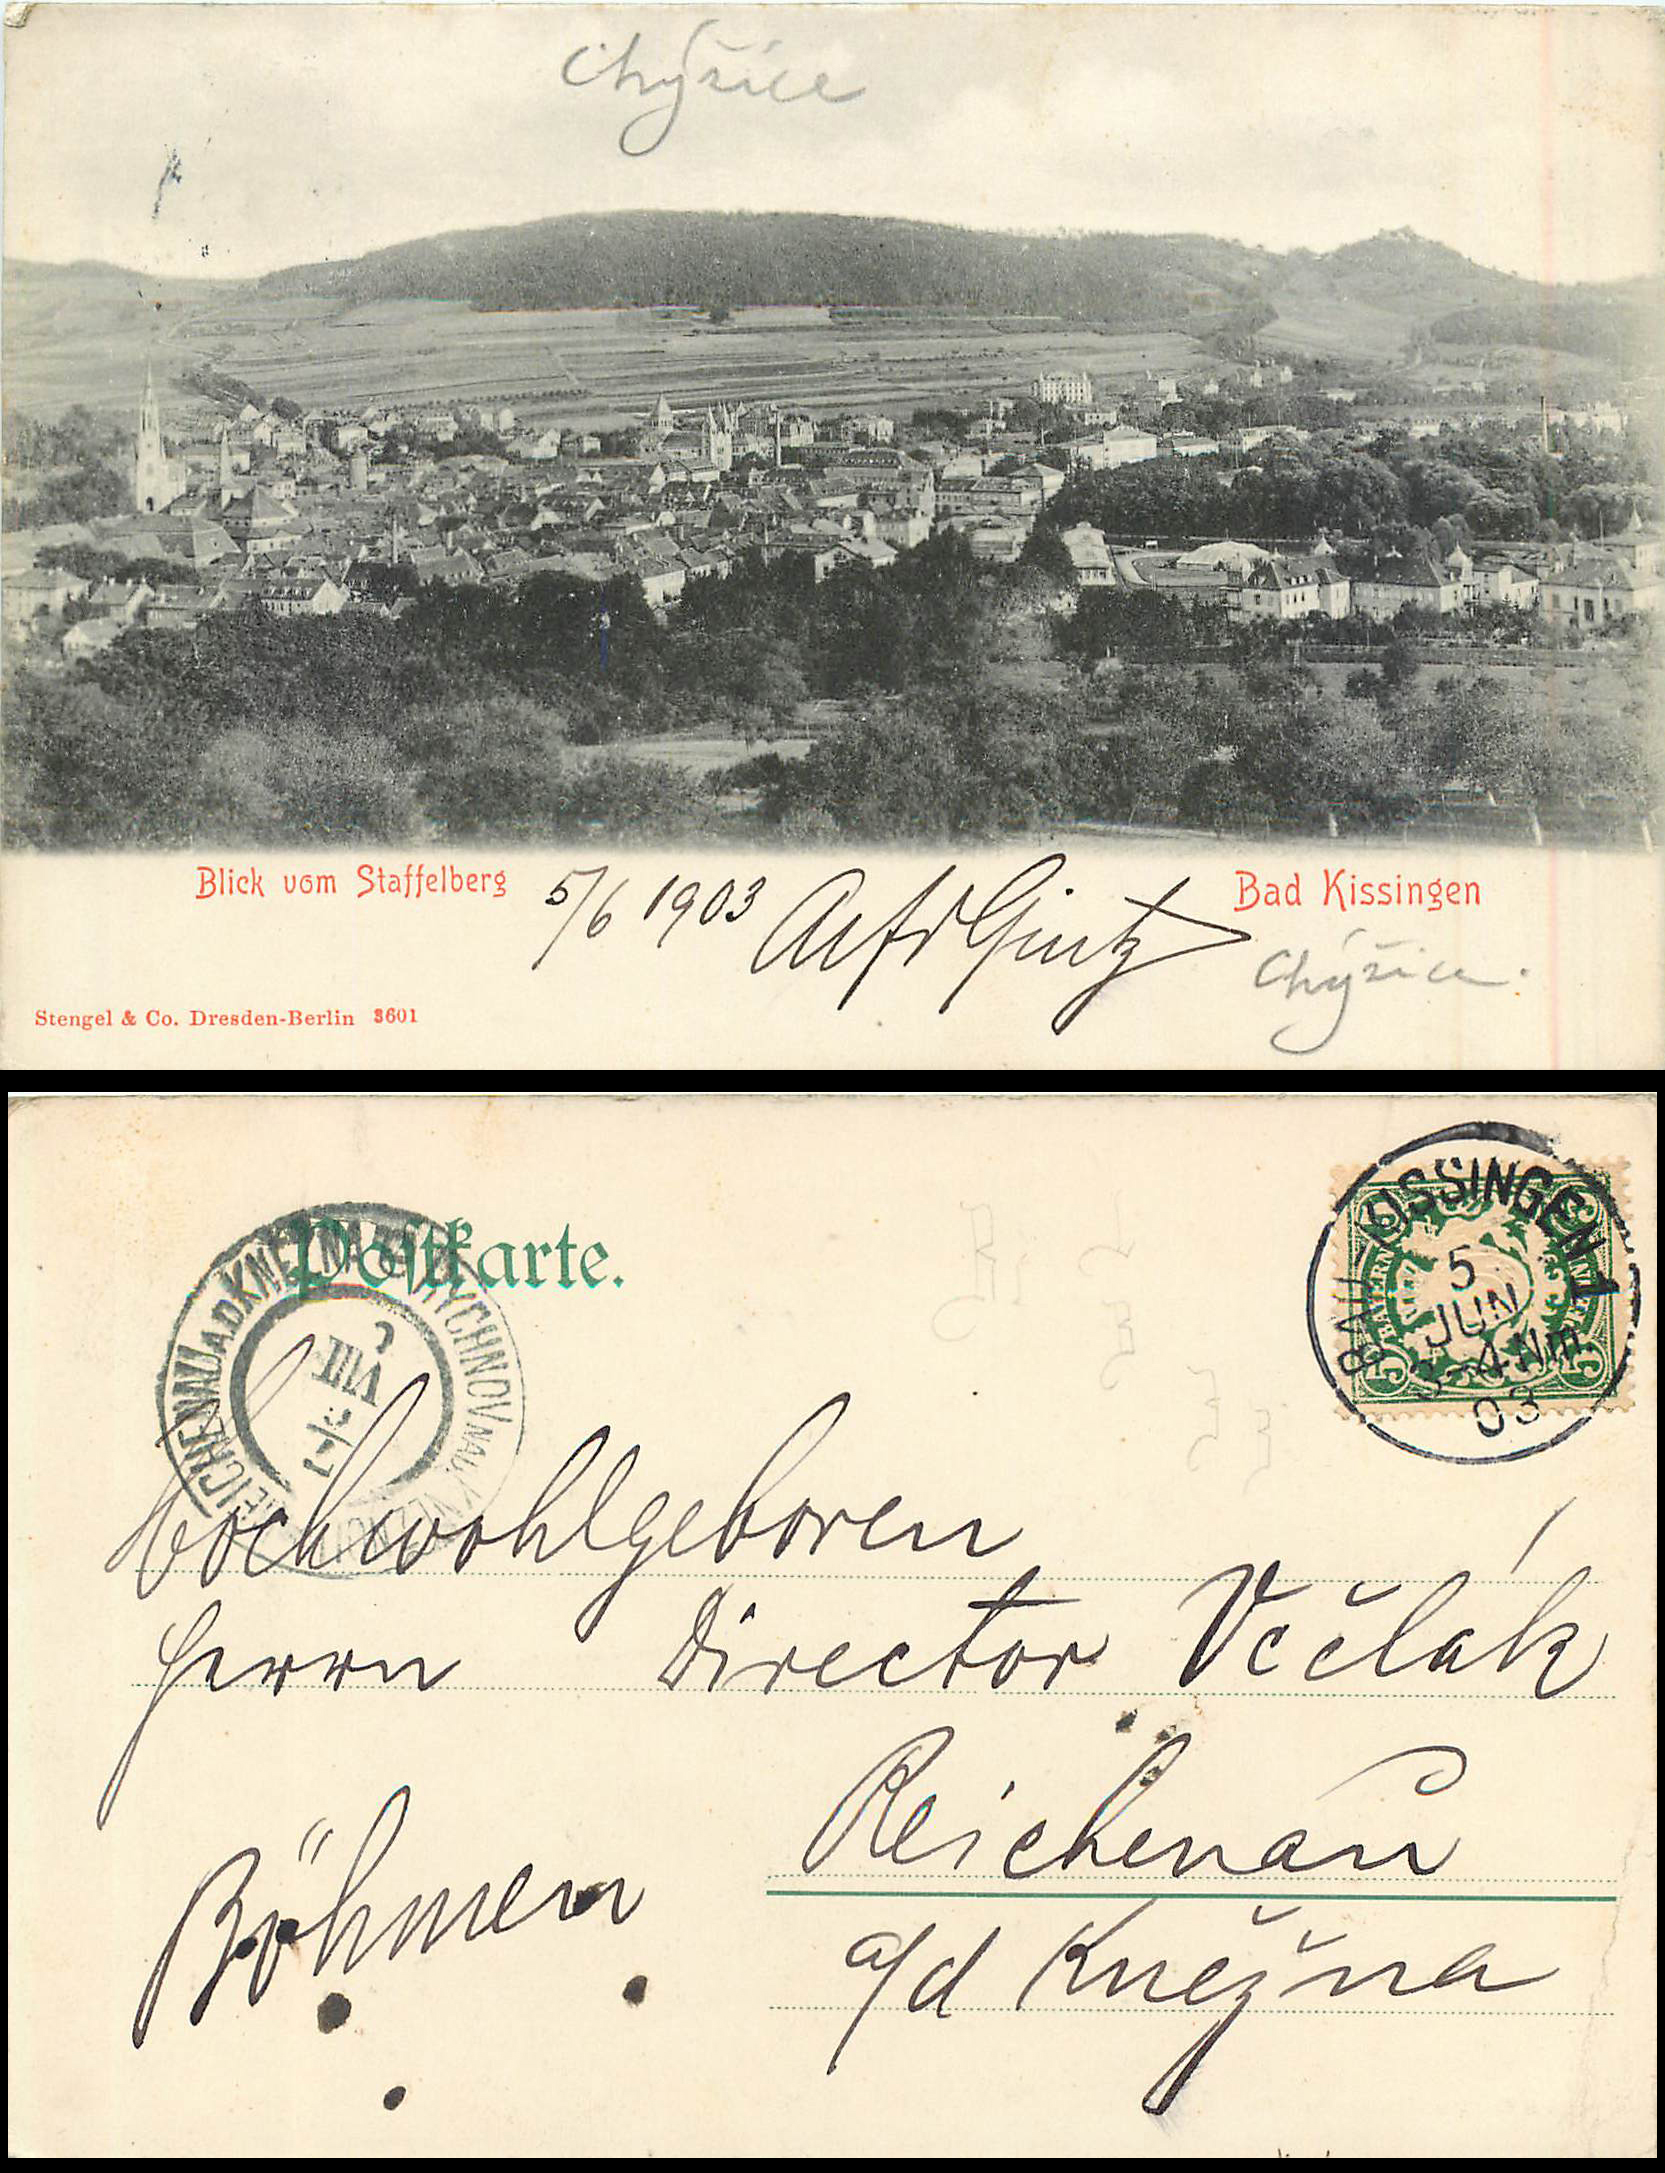 Chýšice
Blick vom Staffelberg
5/6 1903
Bad Kissingen
Chýšice.
Stengel & Co. Dresden-Berlin 3601
Postkarte.
REICHENAU A.D. KNEZNA RYCHNOV NAD KNEZNOU
BAD KISSINGEN 1
5
JUN
3-4 Nm.
03
BAYERN
5 5
Hochwohlgeboren
Herrn Director Včelák
Reichenau
a/d Kněžna
Böhmen